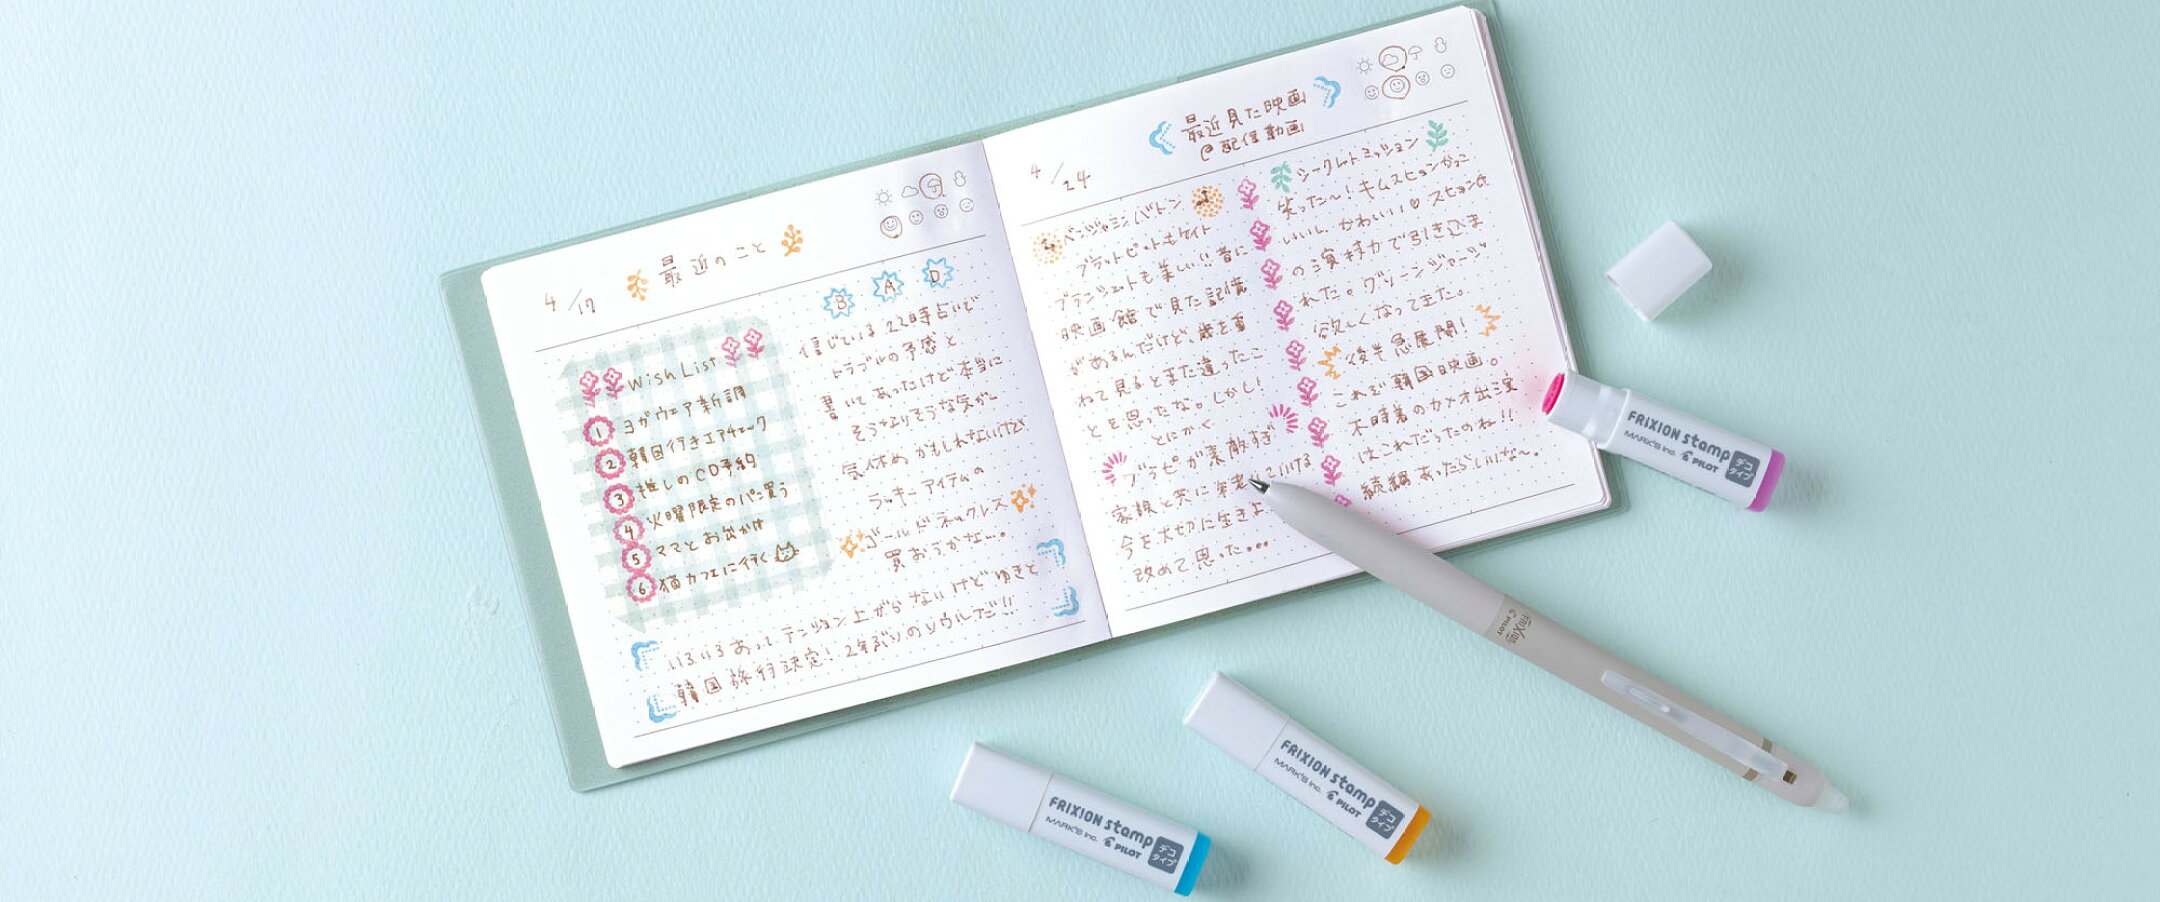 4/17
最近のこと
Wish List
1 ヨガウェア新調
2 韓国行きエアチェック
3 推しのCD予約
4 火曜限定のパン買う
5 ママとお出かけ
6 猫カフェに行く
BAD
信じている22時占いで
トラブルの予感と
書いてあったけど本当に
そうなりそうな気がして
気休めかもしれないけど
ラッキーアイテムの
ゴールドネックレス
買おうかな…。
いろいろあってテンション上がらないけどゆきと
韓国旅行決定！2年ぶりのソウルだ!!
4/24
最近見た映画
@配信動画
ベンジャミンバトン
ブラッドピットもケイト
ブランシェットも美しい!!昔に
映画館で見た記憶
があるんだけど、歳を重
ねて見るとまた違ったこ
とを思ったな。しかし!
とにかく
ブラピが素敵すぎ
家族と共に年老いていける
今を大切に生きよ
改めて思った…
シークレットミッション
笑った〜！キムスヒョンかっこ
いいし、かわいい♡スヒョン氏
の演技力で引き込ま
れた。グリーンジャージ
欲しくなってきた。
後半急展開！
これぞ韓国映画。
不時着のカメオ出演
はこれだったのね!!
続編あったらいいな〜。
FRIXION stamp
MARK'S Inc. PILOT
デコ
タイプ
FRIXION
PILOT
FRIXION stamp
MARK'S Inc. PILOT
デコ
タイプ
FRIXION stamp
MARK'S Inc. PILOT
デコ
タイプ